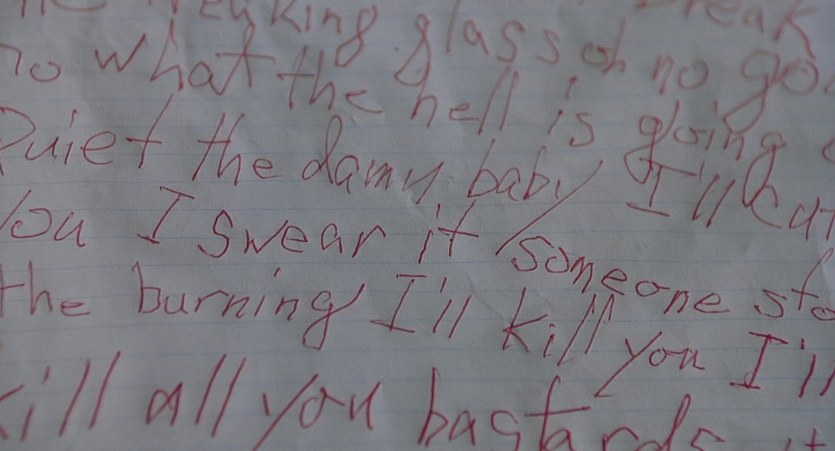 breaking glass oh no go
no what the hell is going
Quiet the damn baby I'll eat
you I swear it someone sto
the burning I'll kill you I'll
kill all you bastards it